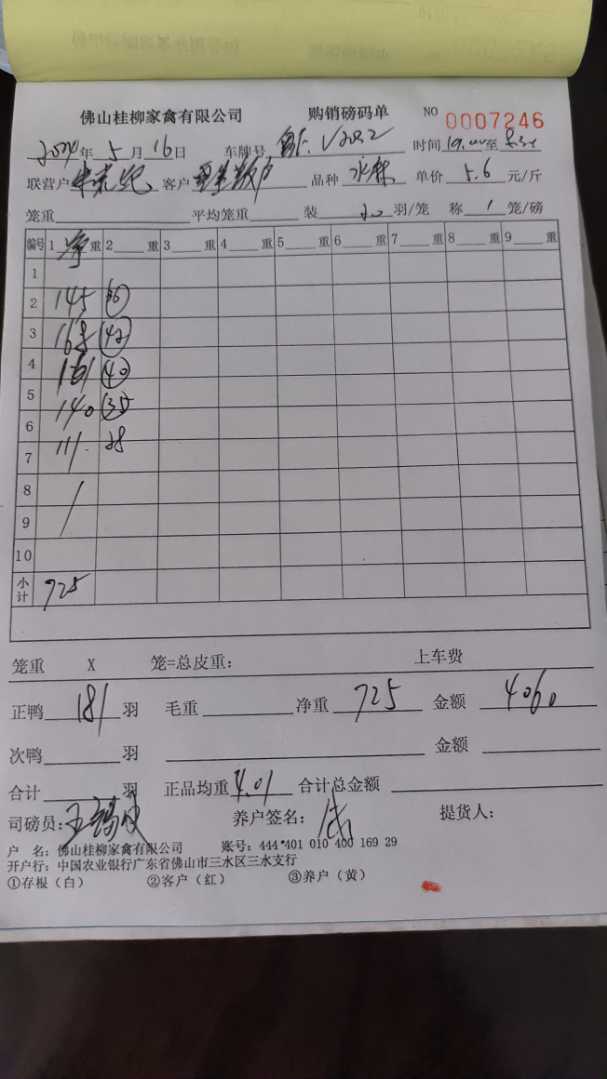 佛山桂柳家禽有限公司 购销磅码单 NO 0007246
2024年 5 月 16 日 车牌号 时间 10.00 至
联营户 客户 品种 水 单价 5.6 元/斤
笼重 平均笼重 装 羽/笼 称 1 笼/磅
编号 1 净 重 2 重 3 重 4 重 5 重 6 重 7 重 8 重 9 重
1
2 145 36
3 168 42
4 161 40
5 140 35
6
7 111 28
8
9
10
小计 725
笼重 X 笼=总皮重: 上车费
正鸭 181 羽 毛重 净重 725 金额 4060
次鸭 羽 金额
合计 羽 正品均重 4.01 合计总金额
司磅员: 养户签名: 提货人:
户 名: 佛山桂柳家禽有限公司 账号: 444 401 010 400 169 29
开户行: 中国农业银行广东省佛山市三水区三水支行
①存根(白) ②客户(红) ③养户(黄)